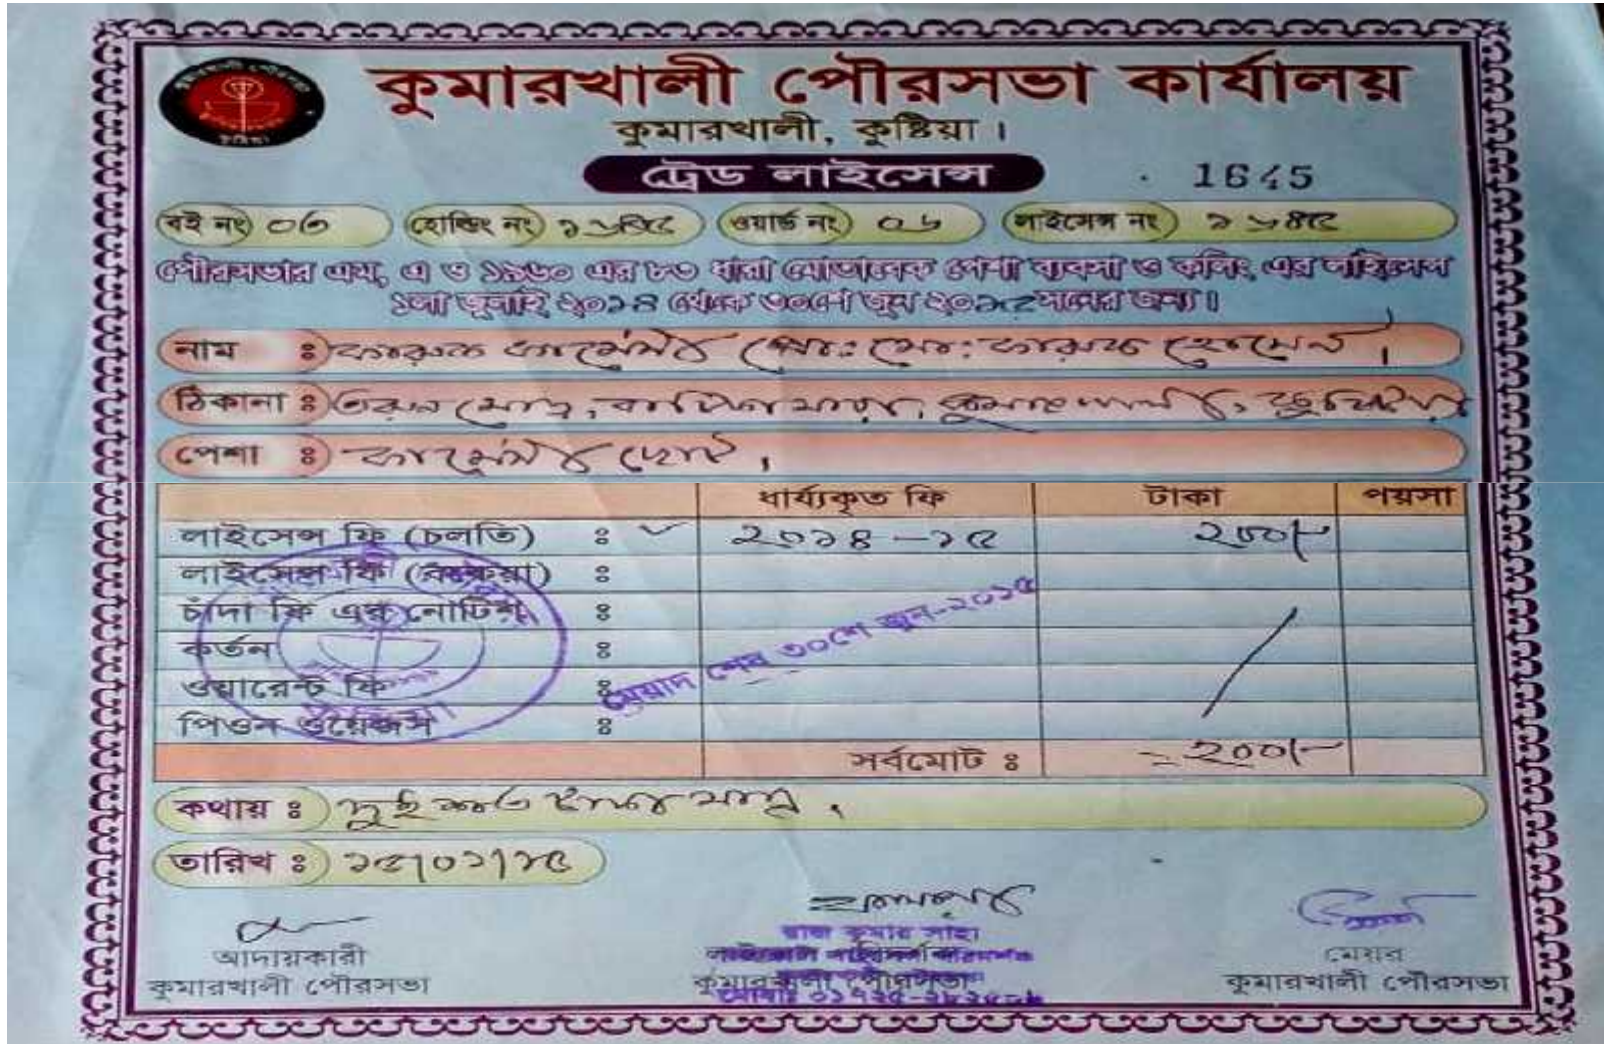 কুমারখালী পৌরসভা
কুষ্টিয়া
কুমারখালী পৌরসভা কার্যালয়
কুমারখালী, কুষ্টিয়া।
ট্রেড লাইসেন্স
1645
বই নং ০৩ হোল্ডিং নং ১৬৪৫ ওয়ার্ড নং ০৬ লাইসেন্স নং ১৬৪৫
পৌরসভার এম, এ ও ১৯৬০ এর ৮৩ ধারা মোতাবেক পেশা ব্যবসা ও কলিং এর লাইসেন্স
১লা জুলাই ২০১৪ থেকে ৩০শে জুন ২০১৫ সনের জন্য।
নাম ঃ ফারুক ফার্মেসী প্রোঃ মোঃ ফারুক হোসেন।
ঠিকানা ঃ তরুন মোড়, কুমারখালী, কুষ্টিয়া
পেশা ঃ ফার্মেসী ছোট।
ধার্য্যকৃত ফি টাকা পয়সা
লাইসেন্স ফি (চলতি) ঃ ২০১৪-১৫ ২০০/-
লাইসেন্স ফি (বকেয়া) ঃ
চাঁদা ফি এর নোটিশ ঃ
কর্তন ঃ
ওয়ারেন্ট ফি ঃ
পিওন ওয়েজস ঃ
মেয়াদ শেষ ৩০শে জুন-২০১৫
সর্বমোট ঃ =২০০/-
কথায় ঃ দুই শত টাকা মাত্র।
তারিখ ঃ ১৫/০১/১৫
আদায়কারী
কুমারখালী পৌরসভা
রাজ কুমার সাহা
লাইসেন্স পরিদর্শক
কুমারখালী পৌরসভা
মেয়র
কুমারখালী পৌরসভা